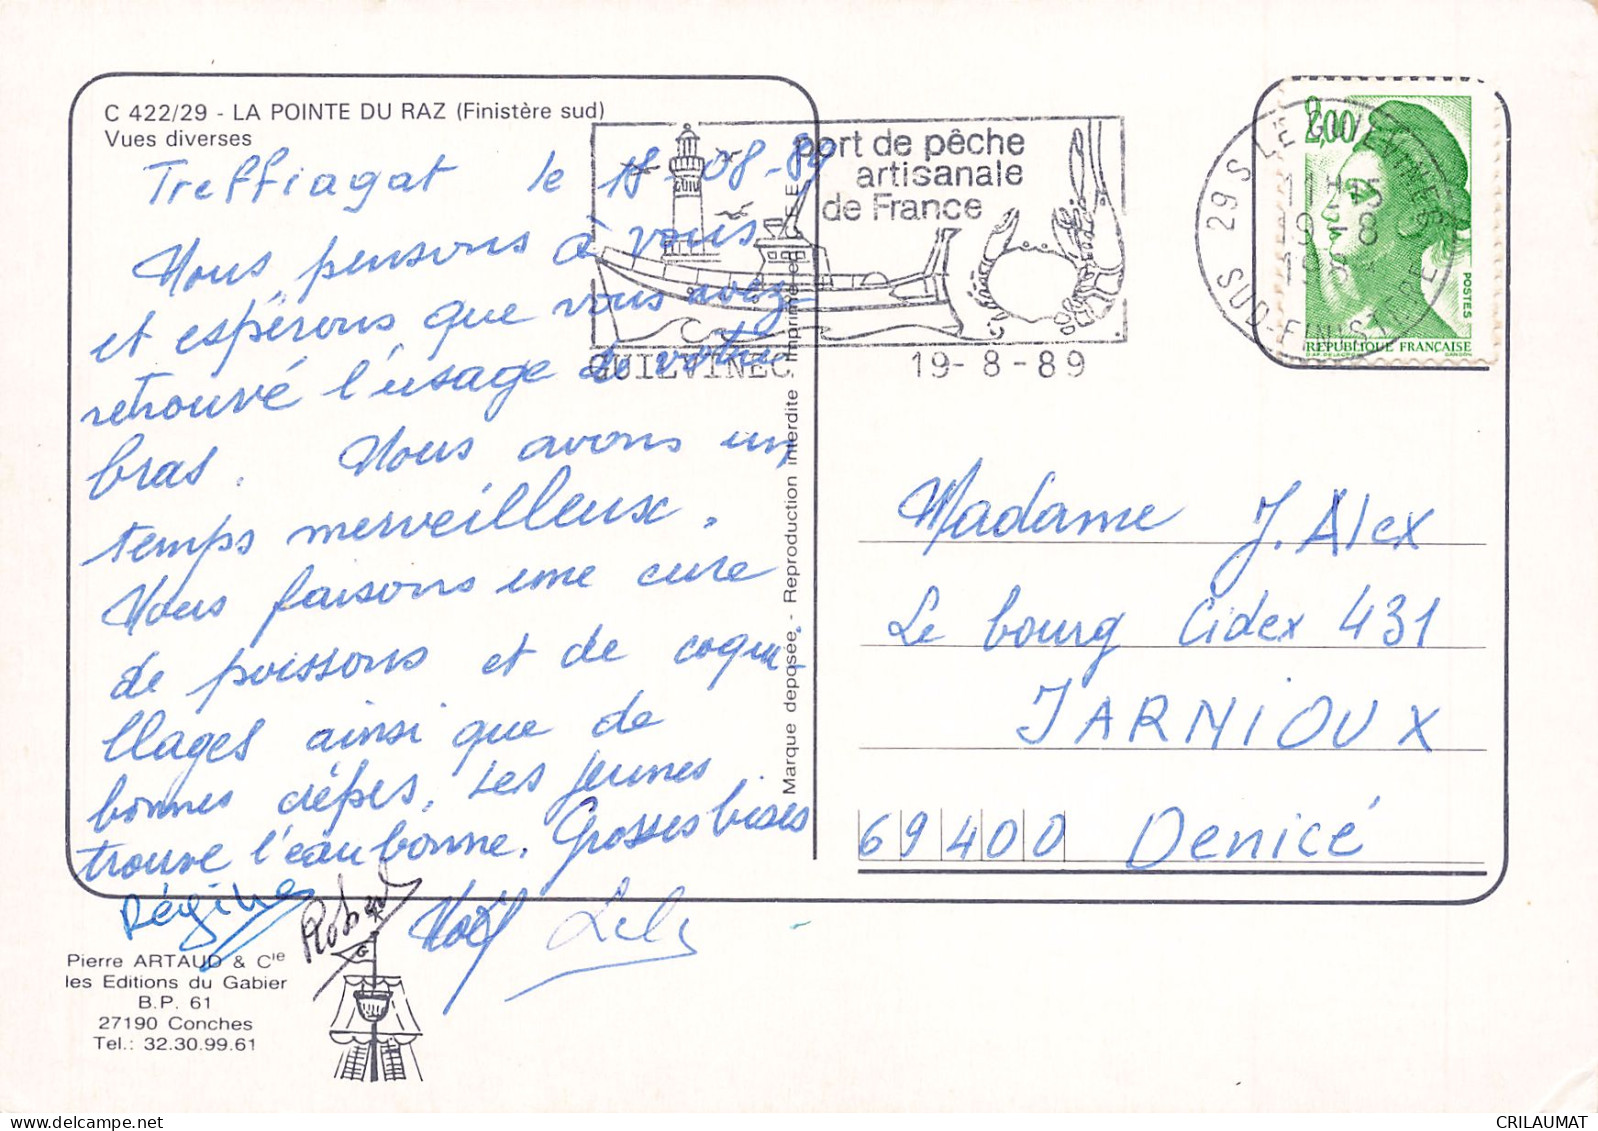 C 422/29 - LA POINTE DU RAZ (Finistère sud)
Vues diverses
Treffiagat le 18-08-89
Nous pensons à vous
et espérons que vous avez
retrouvé l'usage de votre
bras. Nous avons un
temps merveilleux.
Nous faisons une cure
de poissons et de coqui-
llages ainsi que de
bonnes crêpes. Les jeunes
trouve l'eau bonne. Grosses bises
Régine Robert Noël
Pierre ARTAUD & Cie
les Editions du Gabier
B.P. 61
27190 Conches
Tel.: 32.30.99.61
G
Marque deposée. - Reproduction interdite Imprimé en C.E.E.
port de pêche
artisanale
de France
GUIL
GUILVINEC 19-8-89
29 S LE GUILVINEC
11H15
19-8
1989
SUD-FINISTERE
2,00
POSTES
REPUBLIQUE FRANÇAISE
D'AP. DELACROIX GANDON
Madame J. Alex
Le bourg Cidex 431
JARNIOUX
69400 Denicé
CRILAUMAT